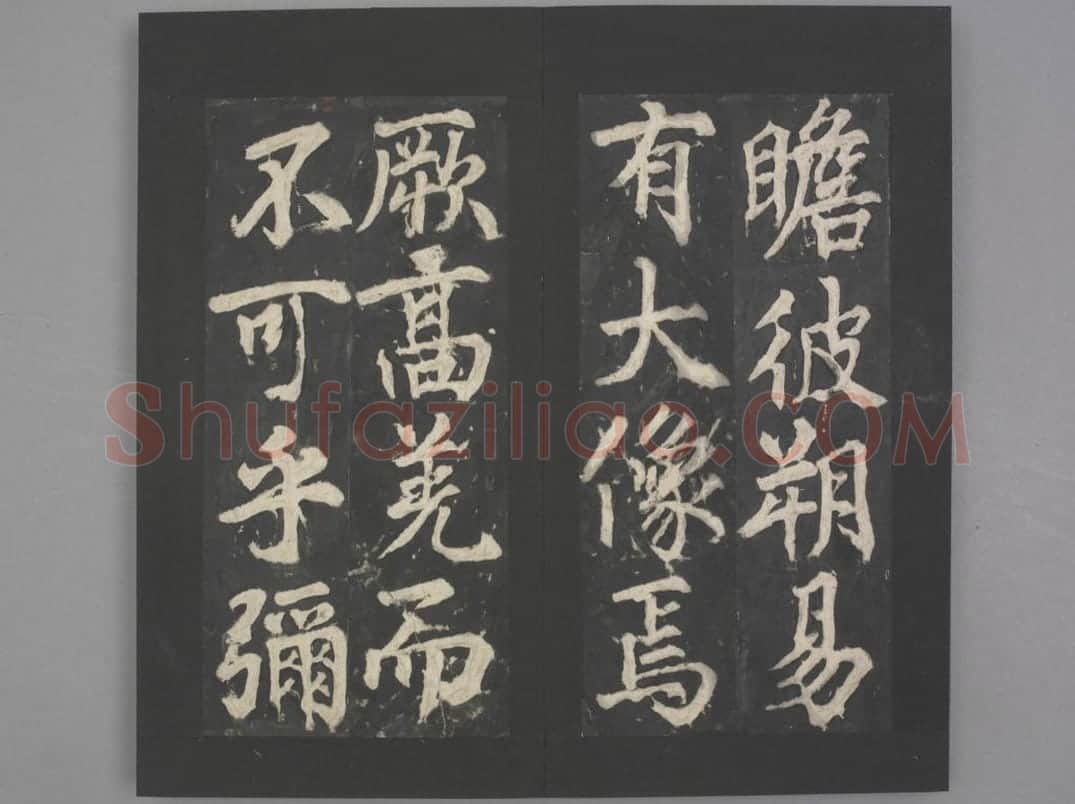 瞻彼朔易
有大像焉
厥高羌而
不可乎彌
Shufaziliao.COM